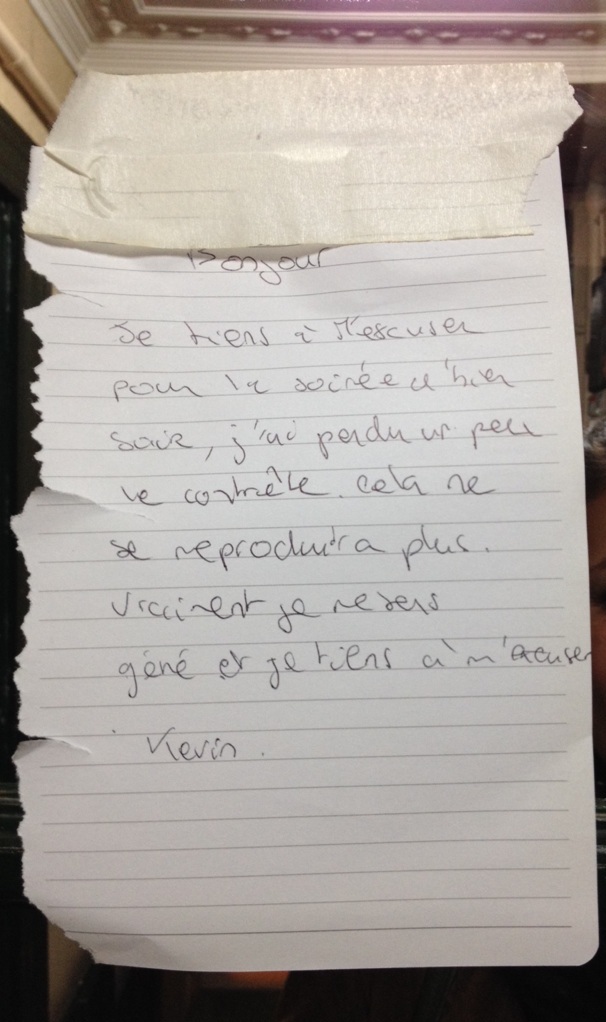 Bonjour
Je tiens à M'escuser
pour la soirée d'hier
soir, j'ai perdu un peu
le contrôle. cela ne
se reproduira plus.
Vraiment je me sens
géné et je tiens à m'excuser
Kevin.